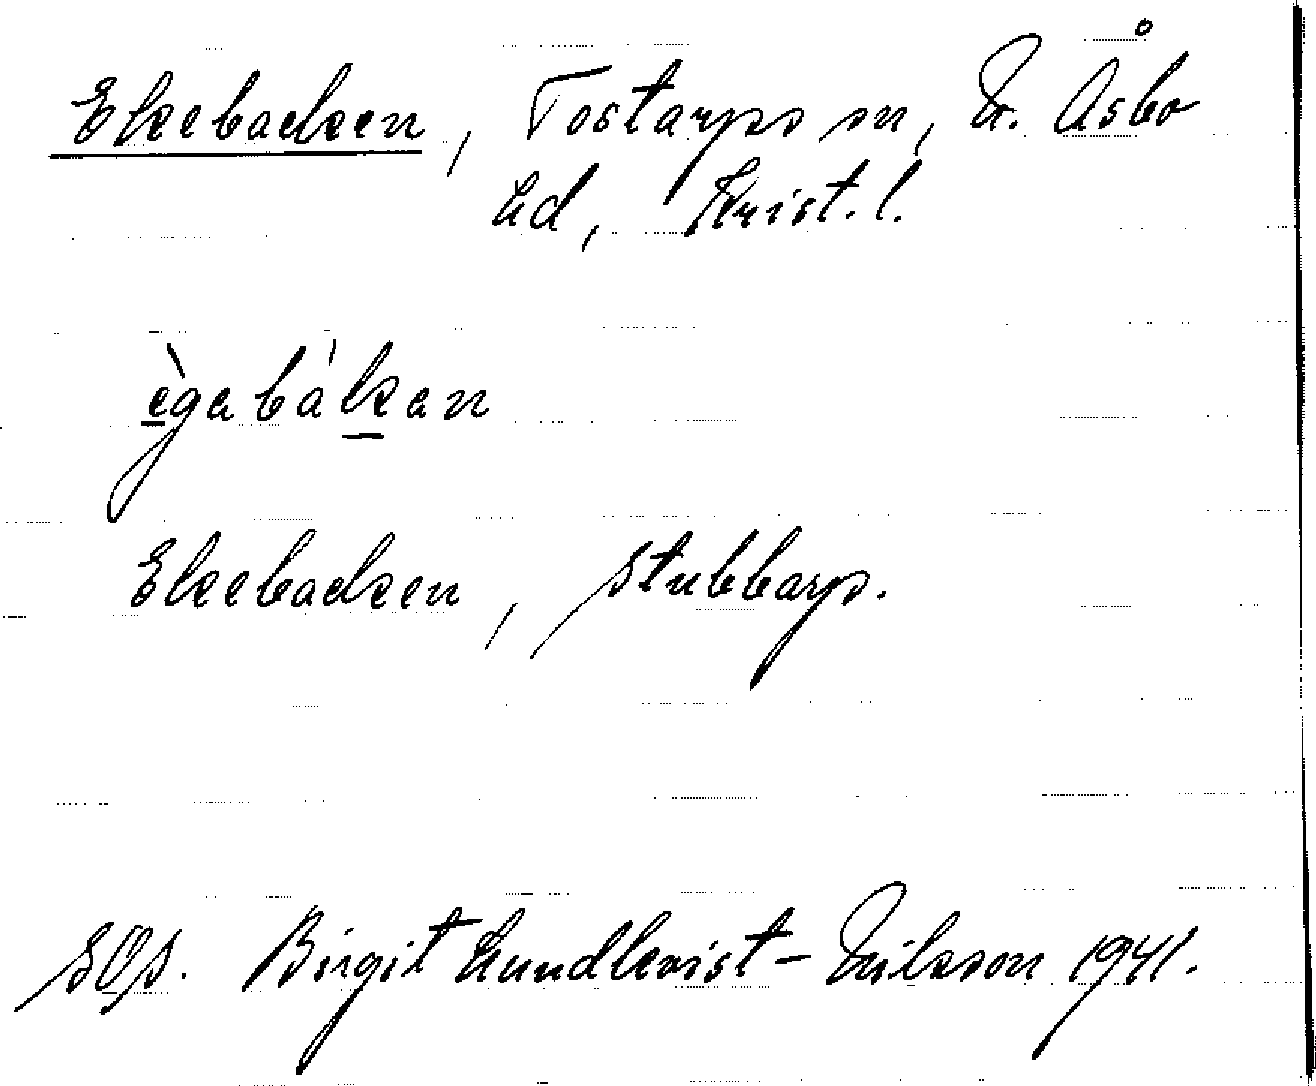 Ekebacken, Tostarps sn, N. Åsbo
hd, Krist. l.
ègabákan
Ekebacken, Stubbarp.
Birgit Lundkvist-Nilsson 1941.